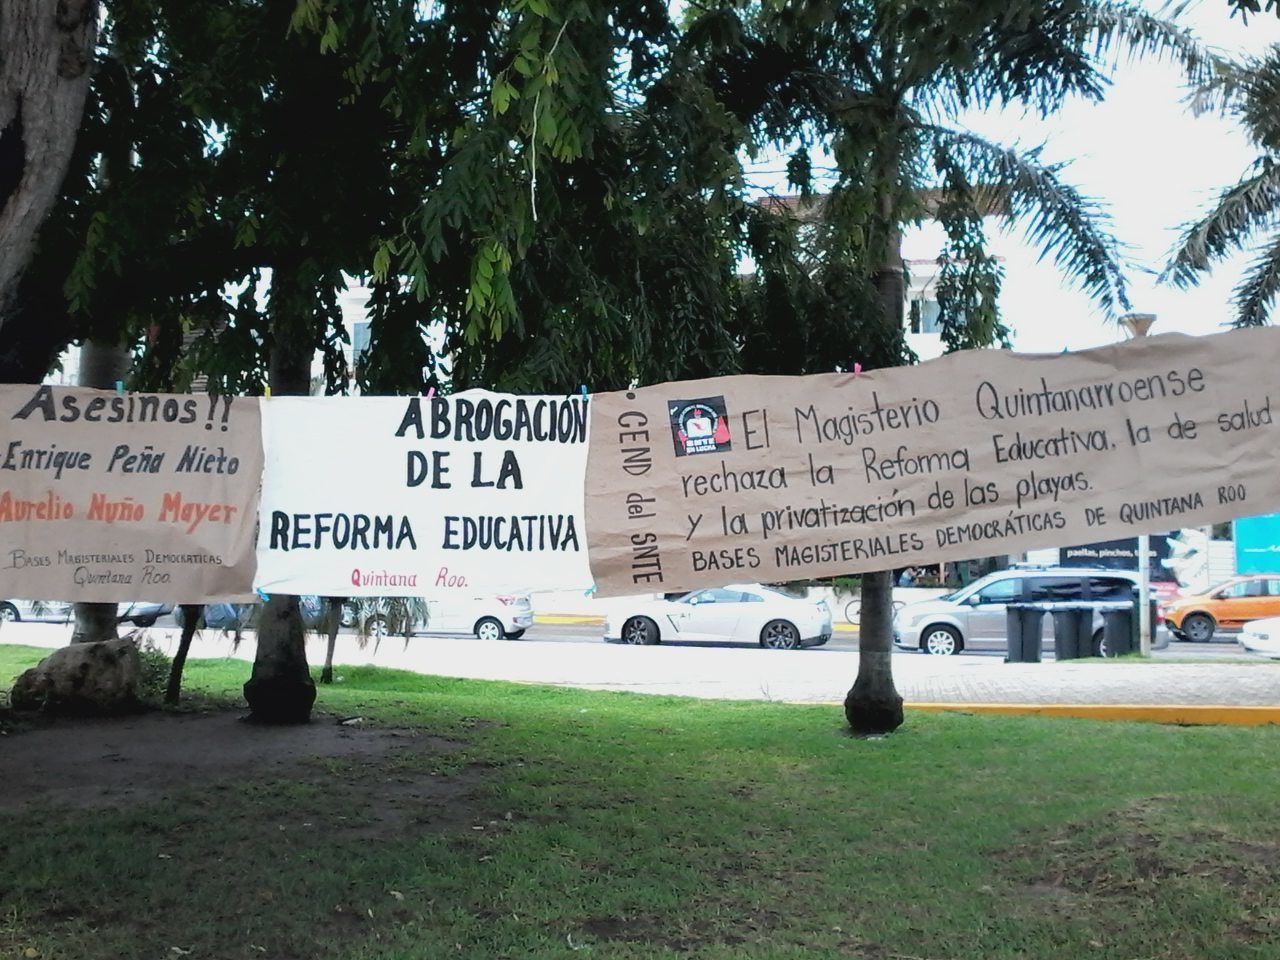 Asesinos!!
Enrique Peña Nieto
Aurelio Nuño Mayer
BASES MAGISTERIALES DEMOCRATICAS
Quintana Roo.
ABROGACIÓN
DE LA
REFORMA EDUCATIVA
Quintana Roo.
• CEND del SNTE
SNTE
EN LUCHA
El Magisterio Quintanarroense
rechaza la Reforma Educativa, la de salud
y la privatización de las playas.
BASES MAGISTERIALES DEMOCRÁTICAS DE QUINTANA ROO
paellas, pinchos,